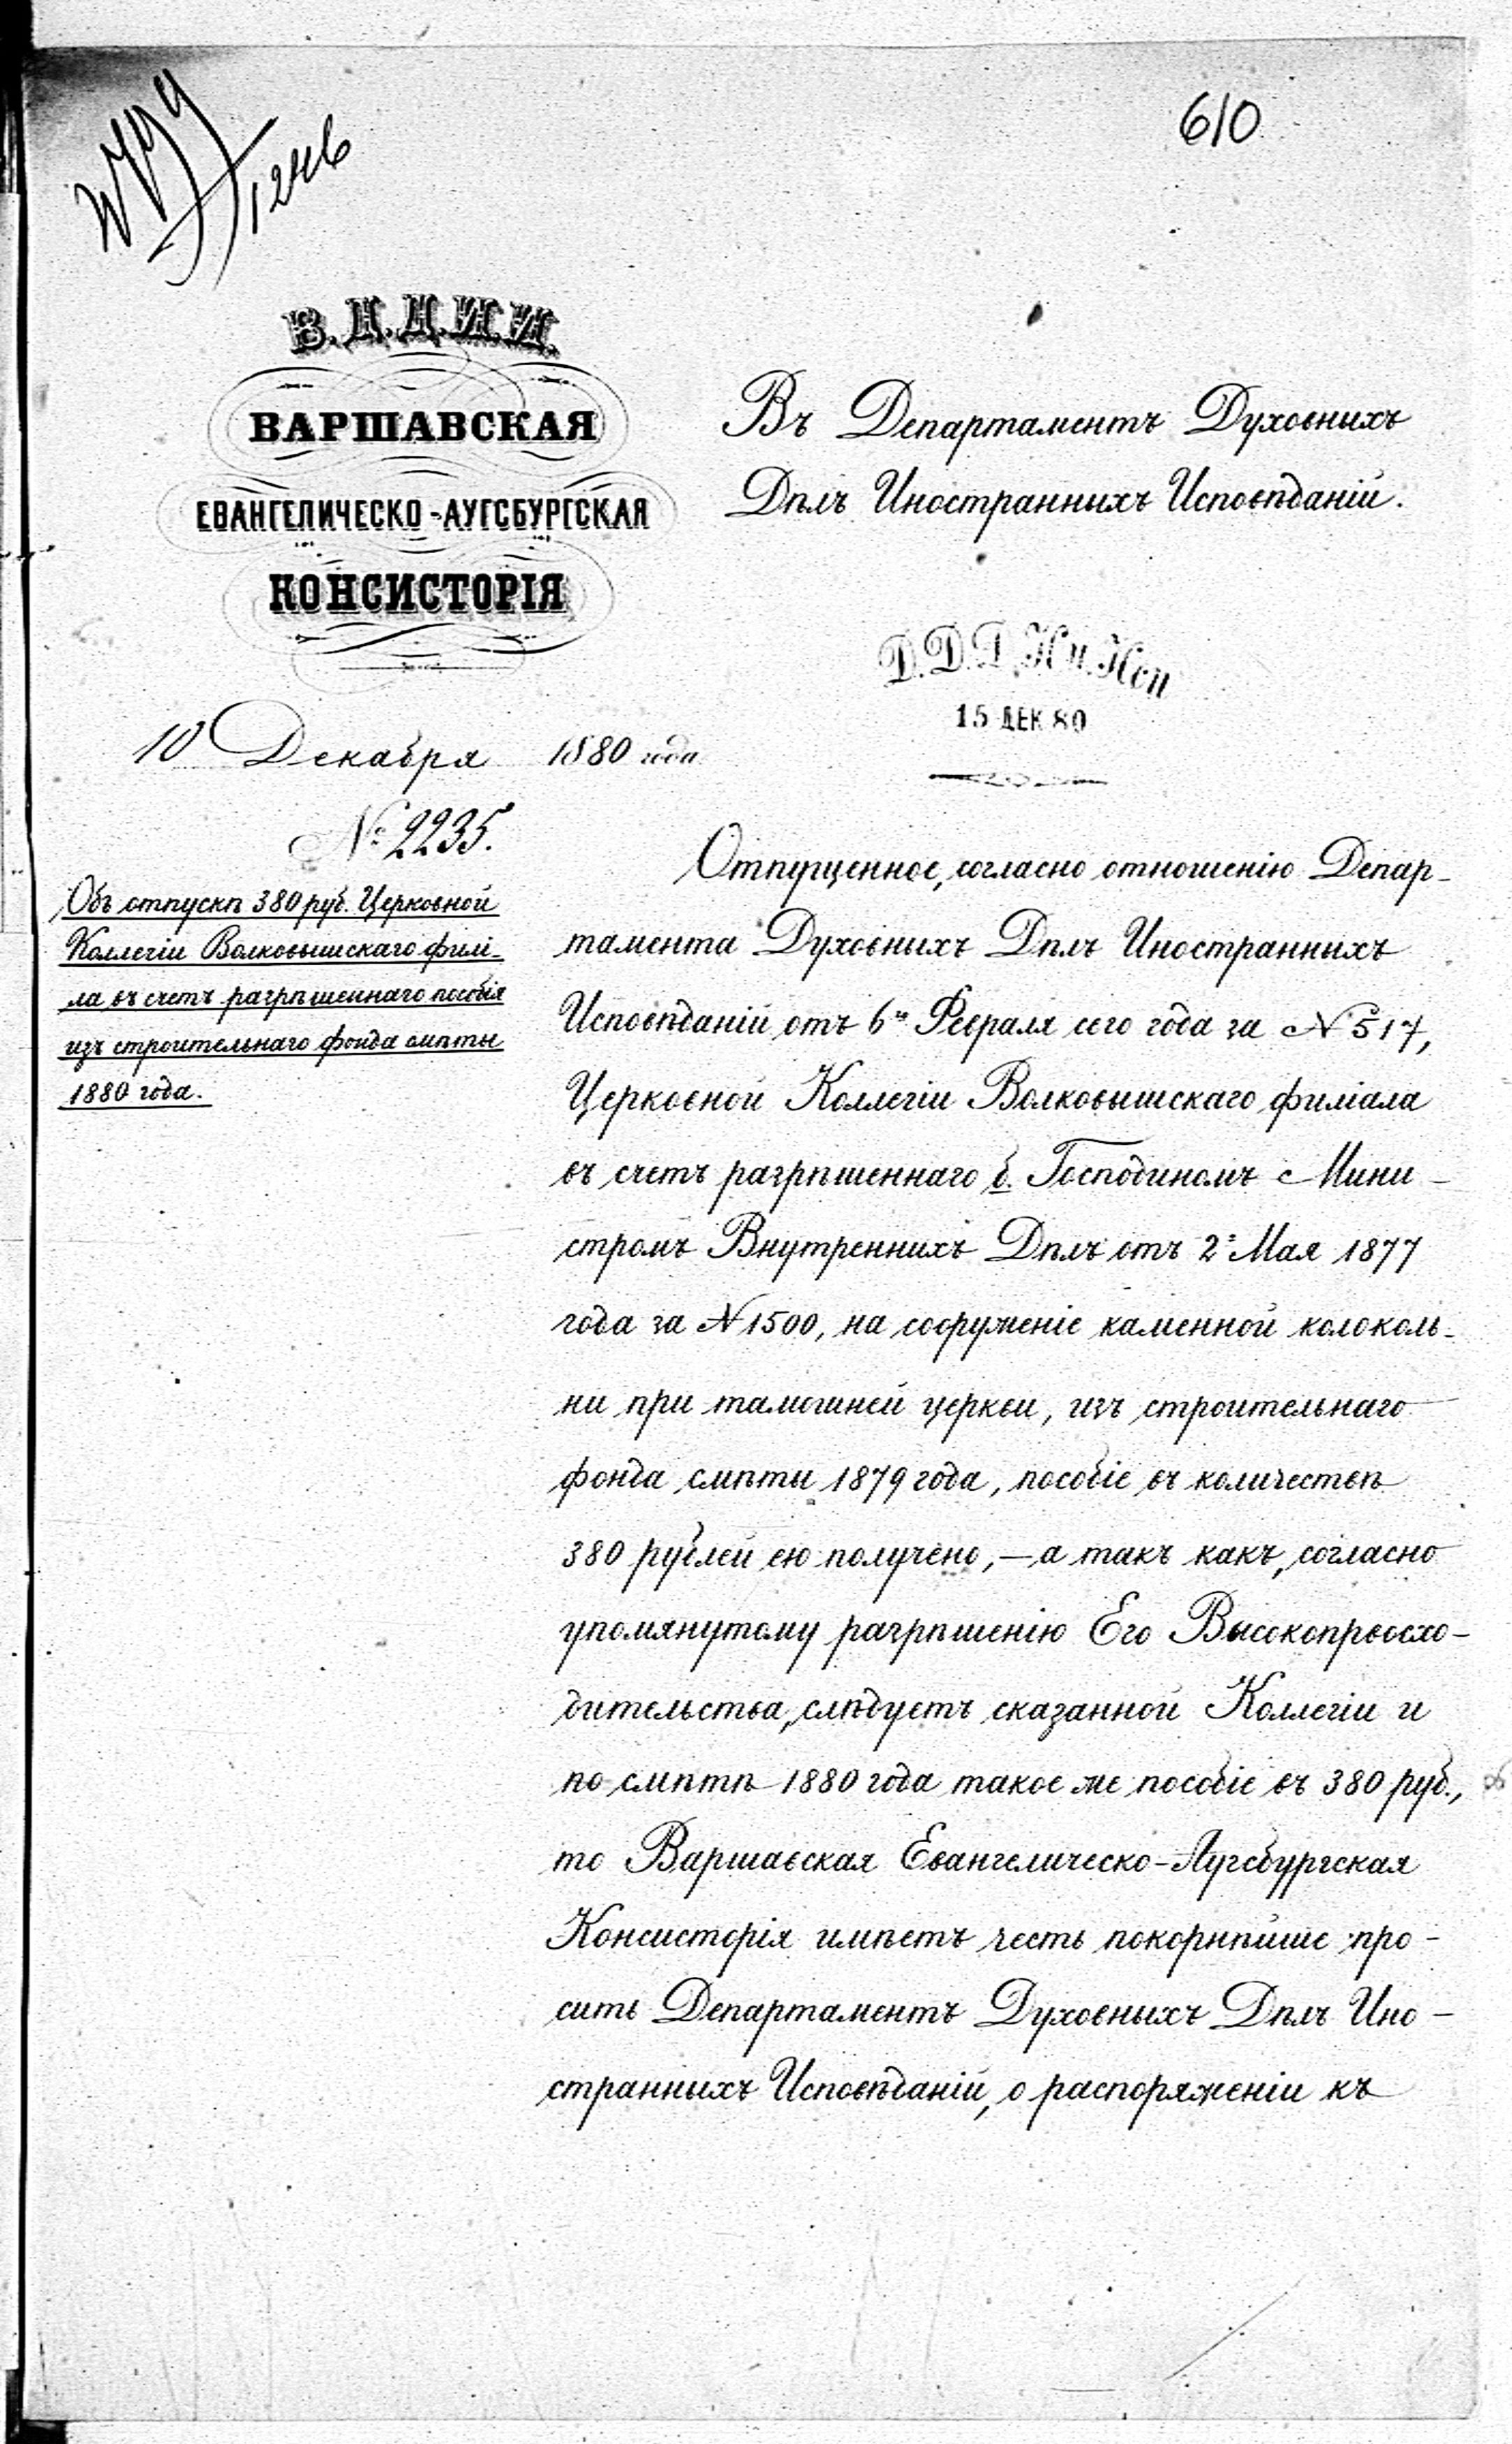 610
В.Д.Д.И.И.
ВАРШАВСКАЯ
ЕВАНГЕЛИЧЕСКО-АУГСБУРГСКАЯ
КОНСИСТОРІЯ
10 Декабря 1880 года
№ 2235.
Объ отпускѣ 380 руб. Церковной
Коллегіи Волковышскаго филі-
ла въ счетъ разрѣшеннаго пособія
изъ строительнаго фонда смѣты
1880 года.
Въ Департаментъ Духовныхъ
Дѣлъ Иностранныхъ Исповѣданій.
Д.Д.Д. Ин. Исп
15 ДЕК 80
Отпущенное, согласно отношенію Депар-
тамента Духовныхъ Дѣлъ Иностранныхъ
Исповѣданій отъ 6го Февраля сего года за № 517,
Церковной Коллегіи Волковышскаго филіала
въ счетъ разрѣшеннаго б. Господиномъ Мини-
стромъ Внутреннихъ Дѣлъ отъ 2го Мая 1877
года за № 1500, на сооруженіе каменной колоколь-
ни при тамошней церкви, изъ строительнаго
фонда смѣты 1879 года, пособіе въ количествѣ
380 рублей ею получено, — а такъ какъ, согласно
упомянутому разрѣшенію Его Высокопревосхо-
дительства, слѣдуетъ сказанной Коллегіи и
по смѣтѣ 1880 года такое же пособіе въ 380 руб.,
то Варшавская Евангелическо-Аугсбургская
Консисторія имѣетъ честь покорнѣйше про-
сить Департаментъ Духовныхъ Дѣлъ Ино-
странныхъ Исповѣданій, о распоряженіи къ